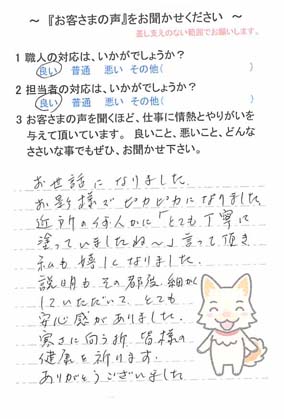 ～ 『お客さまの声』をお聞かせください ～
差し支えのない範囲でお願いします。
1 職人の対応は、いかがでしょうか？
良い 普通 悪い その他( )
2 担当者の対応は、いかがでしょうか？
良い 普通 悪い その他( )
3 お客さまの声を聞くほど、仕事に情熱とやりがいを
与えて頂いています。 良いこと、悪いこと、どんな
ささいな事でもぜひ、お聞かせ下さい。
お世話になりました。
お影様でピカピカになりました
近所の何人かに「とても丁寧に
塗っていましたね～」言って頂き
私も嬉しくなりました。
説明も、その都度 細かく
していただいて、とても
安心感がありました。
寒さに向う折 皆様の
健康を祈ります。
ありがとうございました